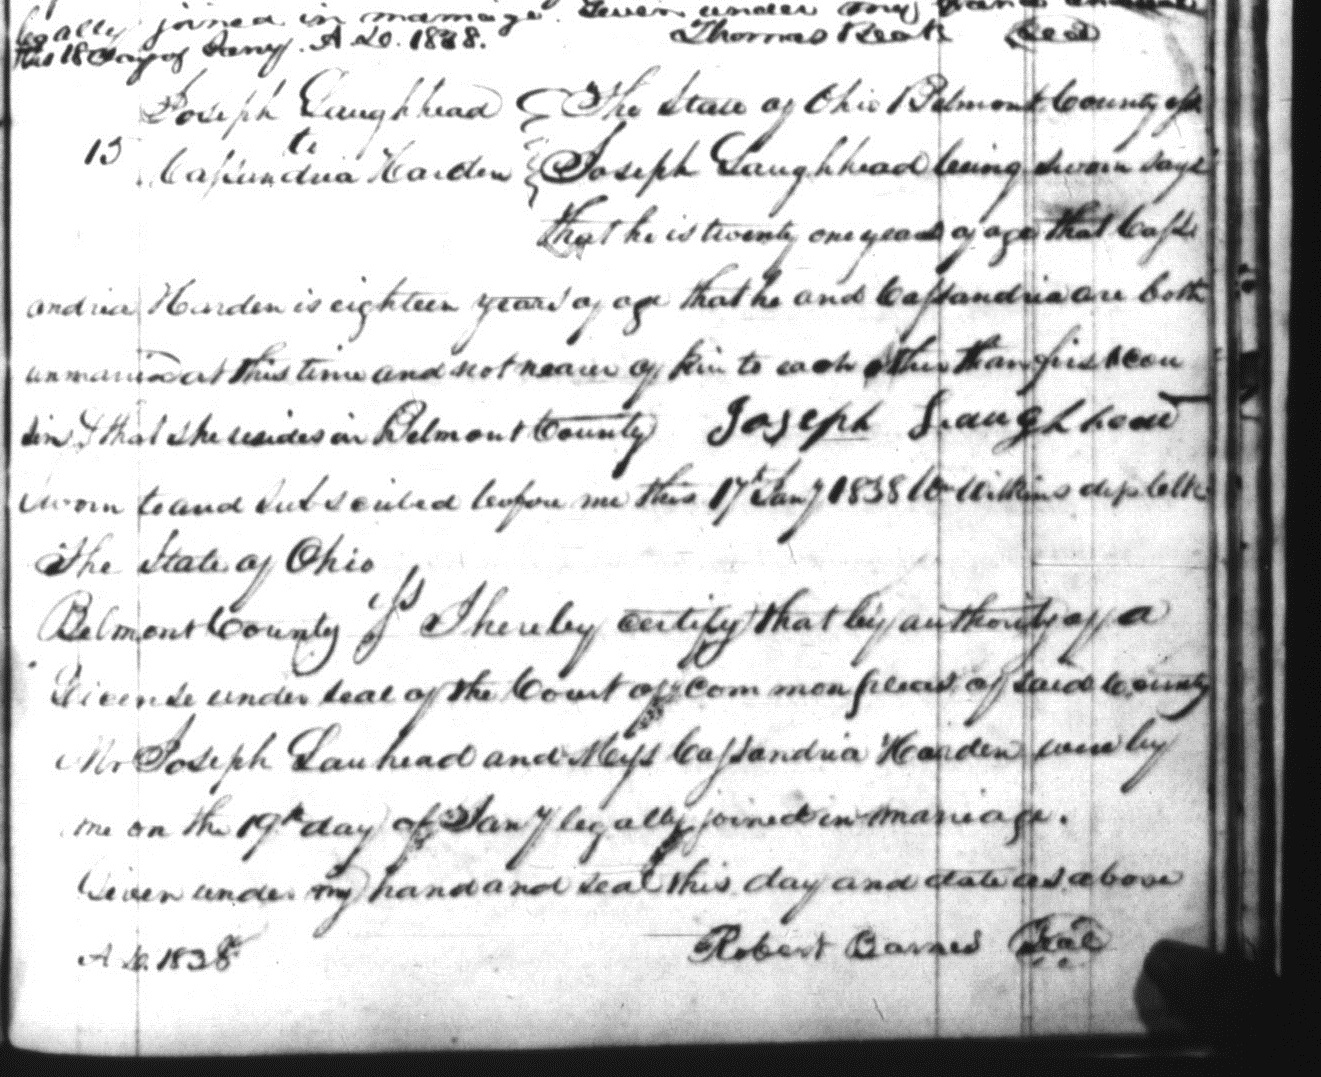 legally joined in marriage. Given under my hand and seal
this 18 day of Jany. A.D. 1838. Thomas Beak Seal
Joseph Laughhead { The State of Ohio Belmont County ss
15 to
Cassandria Harden { Joseph Laughhead being sworn says
that he is twenty one years of age that Cass
andria Harden is eighteen years of age that he and Cassandria are both
unmarried at this time and not nearer of kin to each other than first cou
sins & that she resides in Belmont County Joseph Laughhead
Sworn to and subscribed before me this 17th Jany 1838 Wm Wilkins dep clk
The State of Ohio
Belmont County ss I hereby certify that by authority of a
License under seal of the Court of common pleas of said County
Mr Joseph Lauhead and Miss Cassandria Harden were by
me on the 19th day of Jany legally joined in marriage.
Given under my hand and seal this day and date as above
A.D. 1838 Robert Barnes Seal